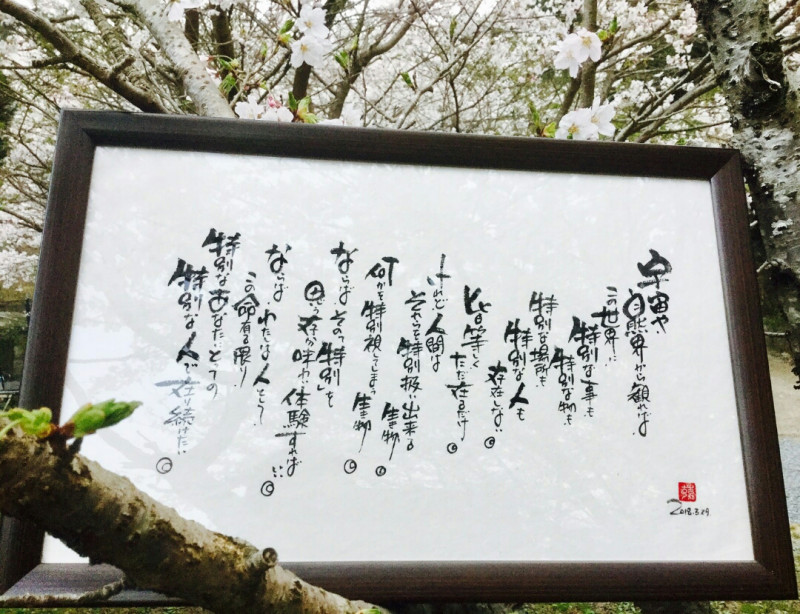 宇宙や
自然界から観れば
この世界に
特別な事も
特別な物も
特別な場所も
特別な人も
存在しない。
皆等しく
ただ在るだけ。
けれど人間は
それらを特別扱い出来る
生き物。
何かを特別視してしまう
生き物。
ならばその「特別」を
思う存分味わい体験すれば
いい。
ならばわたしは人として
この命有る限り
特別なあなたにとっての
特別な人で在り続けたい。
2018.3.29